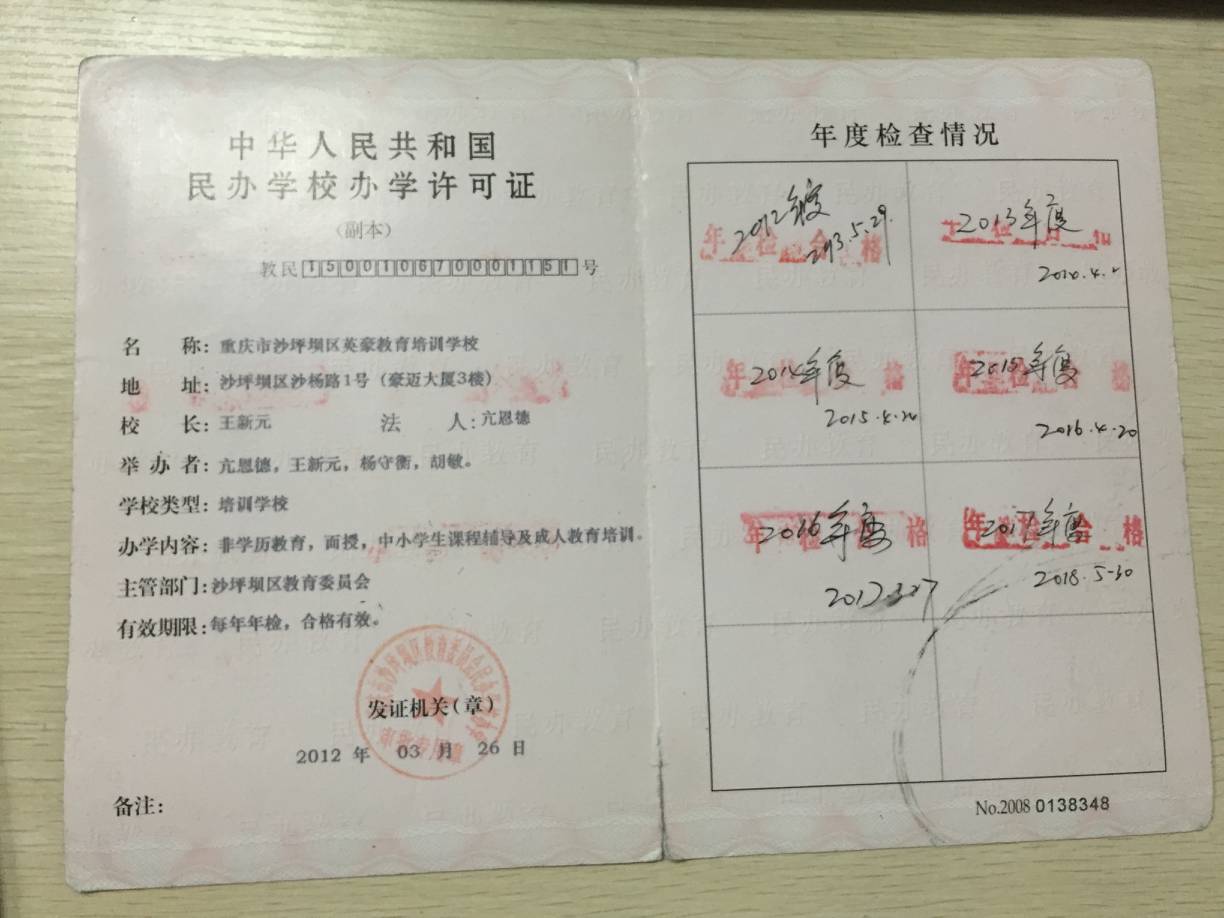 中华人民共和国
民办学校办学许可证
(副本)
教民150010670001151号
名 称: 重庆市沙坪坝区英豪教育培训学校
地 址: 沙坪坝区沙杨路1号(豪迈大厦3楼)
校 长: 王新元 法 人: 亢恩德
举办者: 亢恩德,王新元,杨守衡,胡敏。
学校类型: 培训学校
办学内容: 非学历教育,面授,中小学生课程辅导及成人教育培训。
主管部门: 沙坪坝区教育委员会
有效期限: 每年年检,合格有效。
发证机关(章)
审批专用章
2012 年 03 月 26 日
备注:
年度检查情况
2012年度
2013.5.29.
年检合格
2013年度
2014年度
年检合格
2015.4.20
2015年度
年检合格
2016.4.20
2016年度
年检合格
2017年度
年检合格
2018.5-30
No.2008 0138348